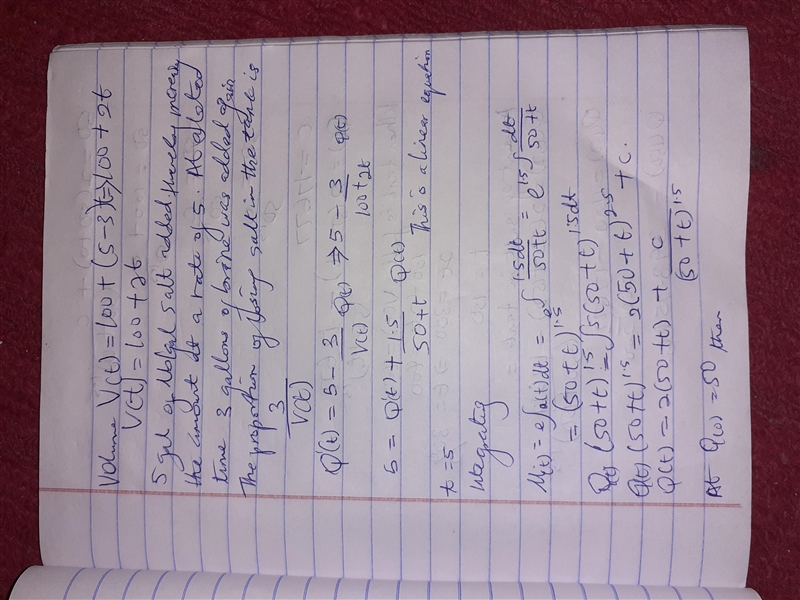 Volume V(t) = 100 + (5-3)t ⇒ 100 + 2t
V(t) = 100 + 2t
5 gal of salt added thereby increasing
the amount at a rate of 5. At allotted
time 3 gallons of brine was added again
The proportion of losing salt in the tank is
3/V(t)
Q'(t) = 5 - 3/V(t) Q(t) ⇒ 5 - 3/(100+2t) Q(t)
5 = Q'(t) + 1.5/(50+t) Q(t)
t = 5 This is a linear equation
Integrating
μ(t) = e∫a(t)dt = e∫1.5dt/(50+t) = e^1.5∫dt/(50+t)
= (50+t)^1.5
Q(t) (50+t)^1.5 = ∫5(50+t)^1.5 dt
Q(t) (50+t)^1.5 = 2(50+t)^2.5 + c.
Q(t) = 2(50+t) + c/(50+t)^1.5
At Q(0) = 50 then